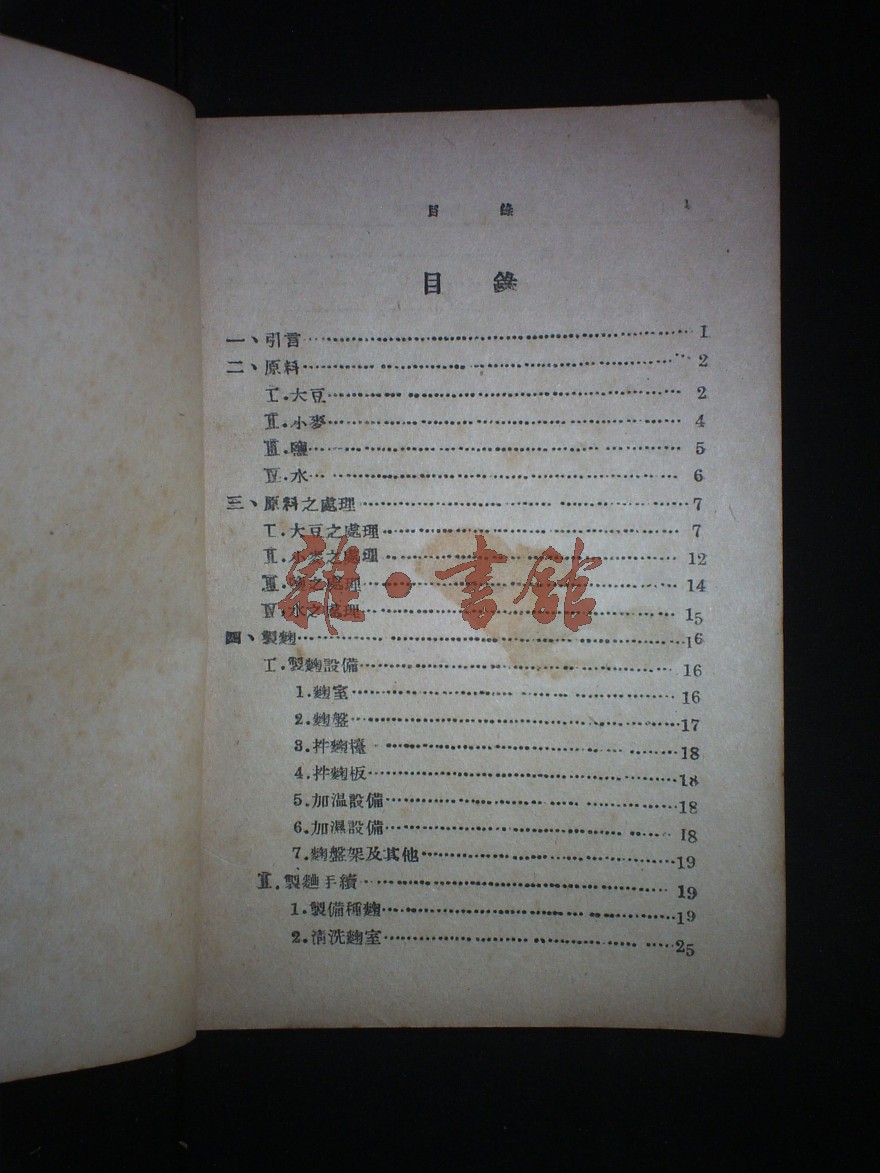 目 錄 1
目 錄
一、引言 1
二、原料 2
I.大豆 2
II.小麥 4
III.鹽 5
IV.水 6
三、原料之處理 7
I.大豆之處理 7
II.小麥之處理 12
III.鹽之處理 14
IV.水之處理 15
雜·書館
四、製麴 16
I.製麴設備 16
1.麴室 16
2.麴盤 17
3.拌麴檯 18
4.拌麴板 18
5.加溫設備 18
6.加濕設備 18
7.麴盤架及其他 19
II.製麴手續 19
1.製備種麴 19
2.清洗麴室 25